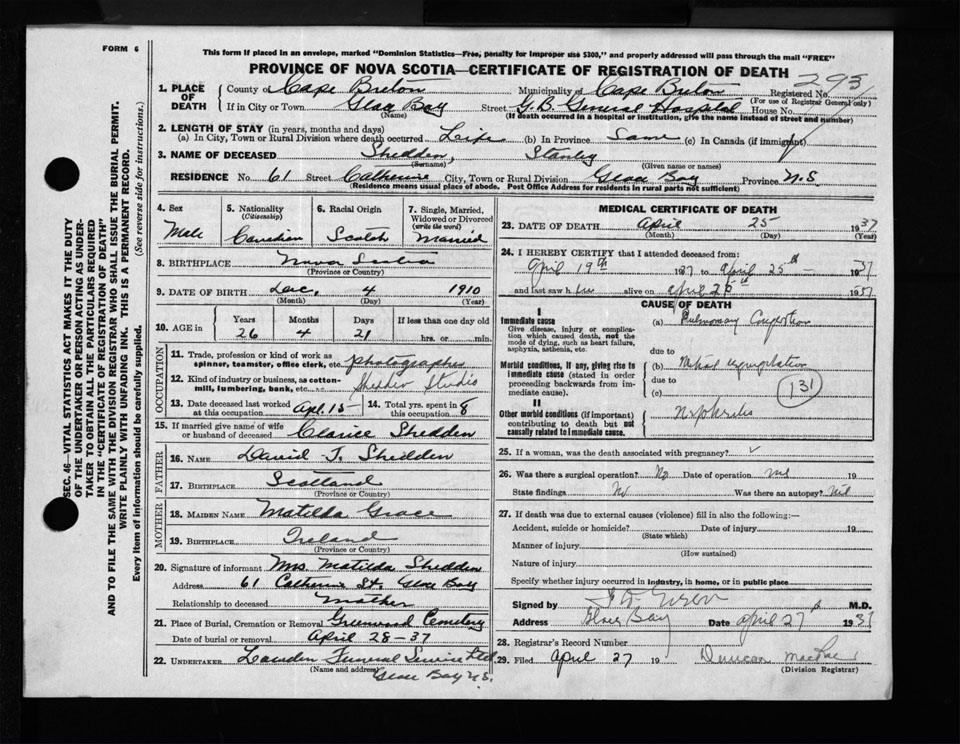 FORM 6
This form if placed in an envelope, marked "Dominion Statistics—Free, penalty for improper use $300," and properly addressed will pass through the mail "FREE"
PROVINCE OF NOVA SCOTIA—CERTIFICATE OF REGISTRATION OF DEATH
293
1. PLACE OF DEATH
County of Cape Breton Municipality of Cape Breton Registered No.
(For use of Registrar General only)
If in City or Town Glace Bay Street G.B. General Hospital House No.
(Name) (If death occurred in a hospital or institution, give the name instead of street and number)
2. LENGTH OF STAY (in years, months and days)
(a) In City, Town or Rural Division where death occurred Life (b) In Province Same (c) In Canada (if immigrant)
3. NAME OF DECEASED Shedden, Stanley
(Surname) (Given name or names)
RESIDENCE No. 61 Street Catherine City, Town or Rural Division Glace Bay Province N.S.
(Residence means usual place of abode. Post Office Address for residents in rural parts not sufficient)
4. Sex Male
5. Nationality (Citizenship) Canadian
6. Racial Origin Scotch
7. Single, Married, Widowed or Divorced (write the word) Married
8. BIRTHPLACE Nova Scotia
(Province or Country)
9. DATE OF BIRTH Dec. 4 1910
(Month) (Day) (Year)
10. AGE in Years Months Days If less than one day old
26 4 21 hrs. or min.
OCCUPATION
11. Trade, profession or kind of work as spinner, teamster, office clerk, etc. photographer
12. Kind of industry or business, as cotton-mill, lumbering, bank, etc. Shedden Studio
13. Date deceased last worked at this occupation Apl. 15 - 14. Total yrs. spent in this occupation 8
15. If married give name of wife or husband of deceased Clarice Shedden
FATHER
16. NAME David T. Shedden
17. BIRTHPLACE Scotland
(Province or Country)
MOTHER
18. MAIDEN NAME Matilda Grace
19. BIRTHPLACE Ireland
(Province or Country)
20. Signature of informant Mrs. Matilda Shedden
Address 61 Catherine St. Glace Bay
Relationship to deceased Mother
21. Place of Burial, Cremation or Removal Greenwood Cemetery
Date of burial or removal April 28-37
22. UNDERTAKER Funeral Service Ltd.
(Name and address) Glace Bay N.S.
MEDICAL CERTIFICATE OF DEATH
23. DATE OF DEATH April 25 1937
(Month) (Day) (Year)
24. I HEREBY CERTIFY that I attended deceased from:
April 19th 1937 to April 25th 1937
and last saw him alive on April 25th 1937
CAUSE OF DEATH
I
Immediate cause
Give disease, injury or complication which caused death, not the mode of dying, such as heart failure, asphyxia, asthenia, etc.
(a) Pulmonary Congestion
due to
Morbid conditions, if any, giving rise to immediate cause (stated in order proceeding backwards from immediate cause).
(b) Mitral regurgitation
due to
(c)
131
II
Other morbid conditions (if important) contributing to death but not causally related to immediate cause.
Nephritis
25. If a woman, was the death associated with pregnancy?
26. Was there a surgical operation? No Date of operation nil 19
State findings Was there an autopsy? Nil
27. If death was due to external causes (violence) fill in also the following:—
Accident, suicide or homicide? Date of injury 19
(State which)
Manner of injury
(How sustained)
Nature of injury
Specify whether injury occurred in industry, in home, or in public place
Signed by M.D.
Address Glace Bay Date April 27th 1937
28. Registrar's Record Number
29. Filed April 27 19 Duncan MacRae
(Division Registrar)
SEC. 46—VITAL STATISTICS ACT MAKES IT THE DUTY
OF THE UNDERTAKER OR PERSON ACTING AS UNDER-
TAKER TO OBTAIN ALL THE PARTICULARS REQUIRED
IN THE "CERTIFICATE OF REGISTRATION OF DEATH"
AND TO FILE THE SAME WITH THE DIVISION REGISTRAR WHO SHALL ISSUE THE BURIAL PERMIT.
WRITE PLAINLY WITH UNFADING INK. THIS IS A PERMANENT RECORD.
Every item of information should be carefully supplied. (See reverse side for instructions.)